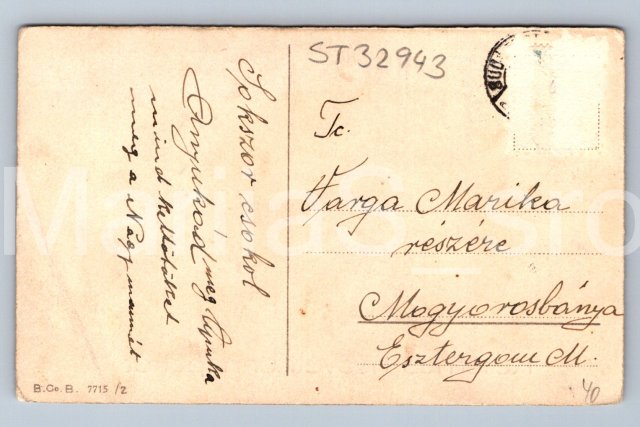 ST32943
BUD
Tc.
Varga Marika
részére
Mogyorosbánya
Esztergom M.
Sokszor csokol
Anyukád meg Apuka
mind kettőtöket
meg a Nagymamát
B.Co.B. 7715/2
40